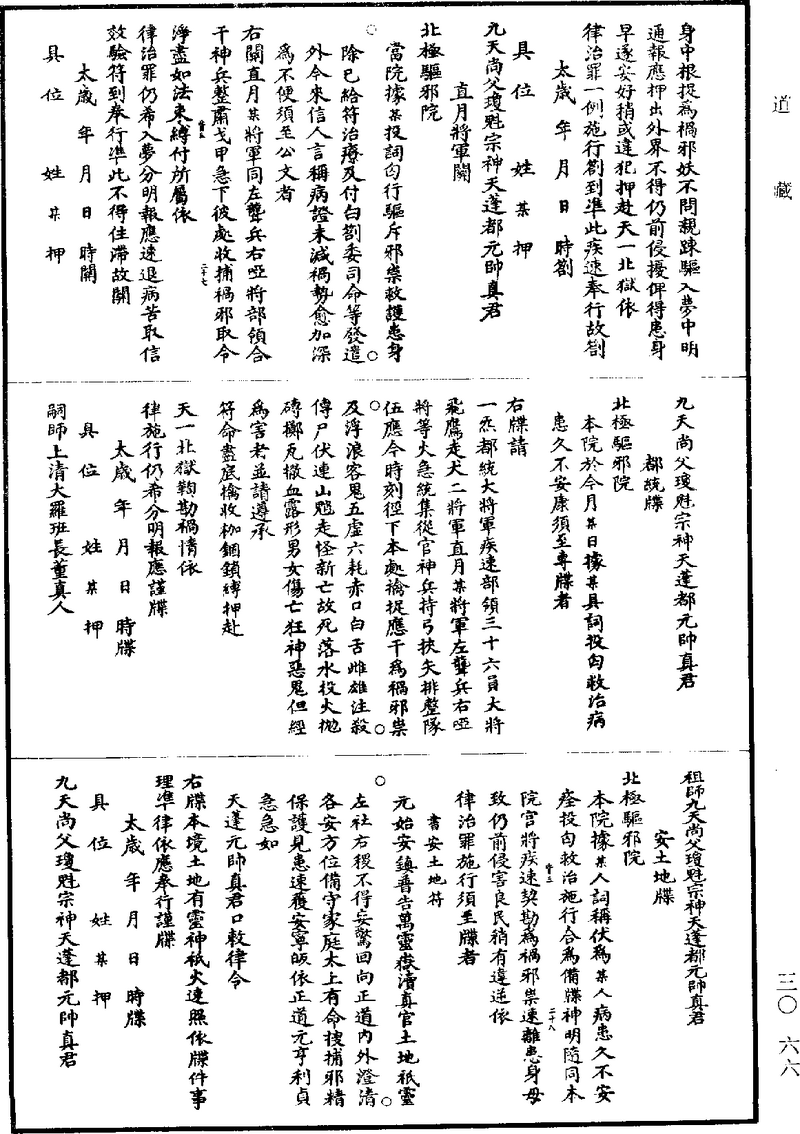 道藏
三〇 六六
身中根捉為禍邪妖不問親踈驅入夢中明
通報應押出外界不得仍前侵擾俾得患身
早遂安好稍或違犯押赴天一北獄依
律治罪一例施行劄到準此疾速奉行故劄
太歲 年 月 日 時劄
具位 姓 某 押
九天尚父瓊魁宗神天蓬都元帥真君
直月將軍關
北極驅邪院
當院據某投詞匄行驅斥邪祟救護患身
除已給符治療及付白劄委司命等發遣
外今來信人言稱病證未減禍勢愈加深
為不便須至公文者
右關直月某將軍同左聾兵右啞將部領合
干神兵整肅戈甲急下彼處收捕禍邪取令
淨盡如法束縛付所屬依
律治罪仍希入夢分明報應速退病苦取信
效驗符到奉行準此不得住滯故關
太歲 年 月 日 時關
具位 姓 某 押
九天尚父瓊魁宗神天蓬都元帥真君
都統牒
北極驅邪院
本院於今月某日據某具詞投匄救治病
患久不安康須至專牒者
右牒請
一炁都統大將軍疾速部領三十六員大將
飛鷹走犬二將軍直月某將軍左聾兵右啞
將等火急統集從官神兵持弓挾矢排整隊
伍應今時刻徑下本處擒捉應干為禍邪祟
及浮浪客鬼五虛六耗赤口白舌雌雄注殺
傳尸伏連山魈走怪新亡故死落水投火拋
磚擲瓦撒血露形男女傷亡狂神惡鬼但經
為害者並請遵承
符命盡底擒收枷錮鎖縛押赴
天一北獄鞫勘禍情依
律施行仍希分明報應謹牒
太歲 年 月 日 時牒
具位 姓 某 押
嗣師上清大羅班長董真人
祖師九天尚父瓊魁宗神天蓬都元帥真君
安土地牒
北極驅邪院
本院據某人詞稱伏為某人病患久不安
痊投匄救治施行合為備牒神明隨同本
院官將疾速契勘為禍邪祟速離患身毋
致仍前侵害良民稍有違逆依
律治罪施行須至牒者
書安土地符
元始安鎮普告萬靈嶽瀆真官土地祇靈
左社右稷不得妄驚回向正道內外澄清
各安方位備守家庭太上有命搜捕邪精
保護見患速獲安寧皈依正道元亨利貞
急急如
天蓬元帥真君口敕律令
右牒本境土地有靈神祇火速照依牒件事
理準律依應奉行謹牒
太歲 年 月 日 時牒
具位 姓 某 押
九天尚父瓊魁宗神天蓬都元帥真君